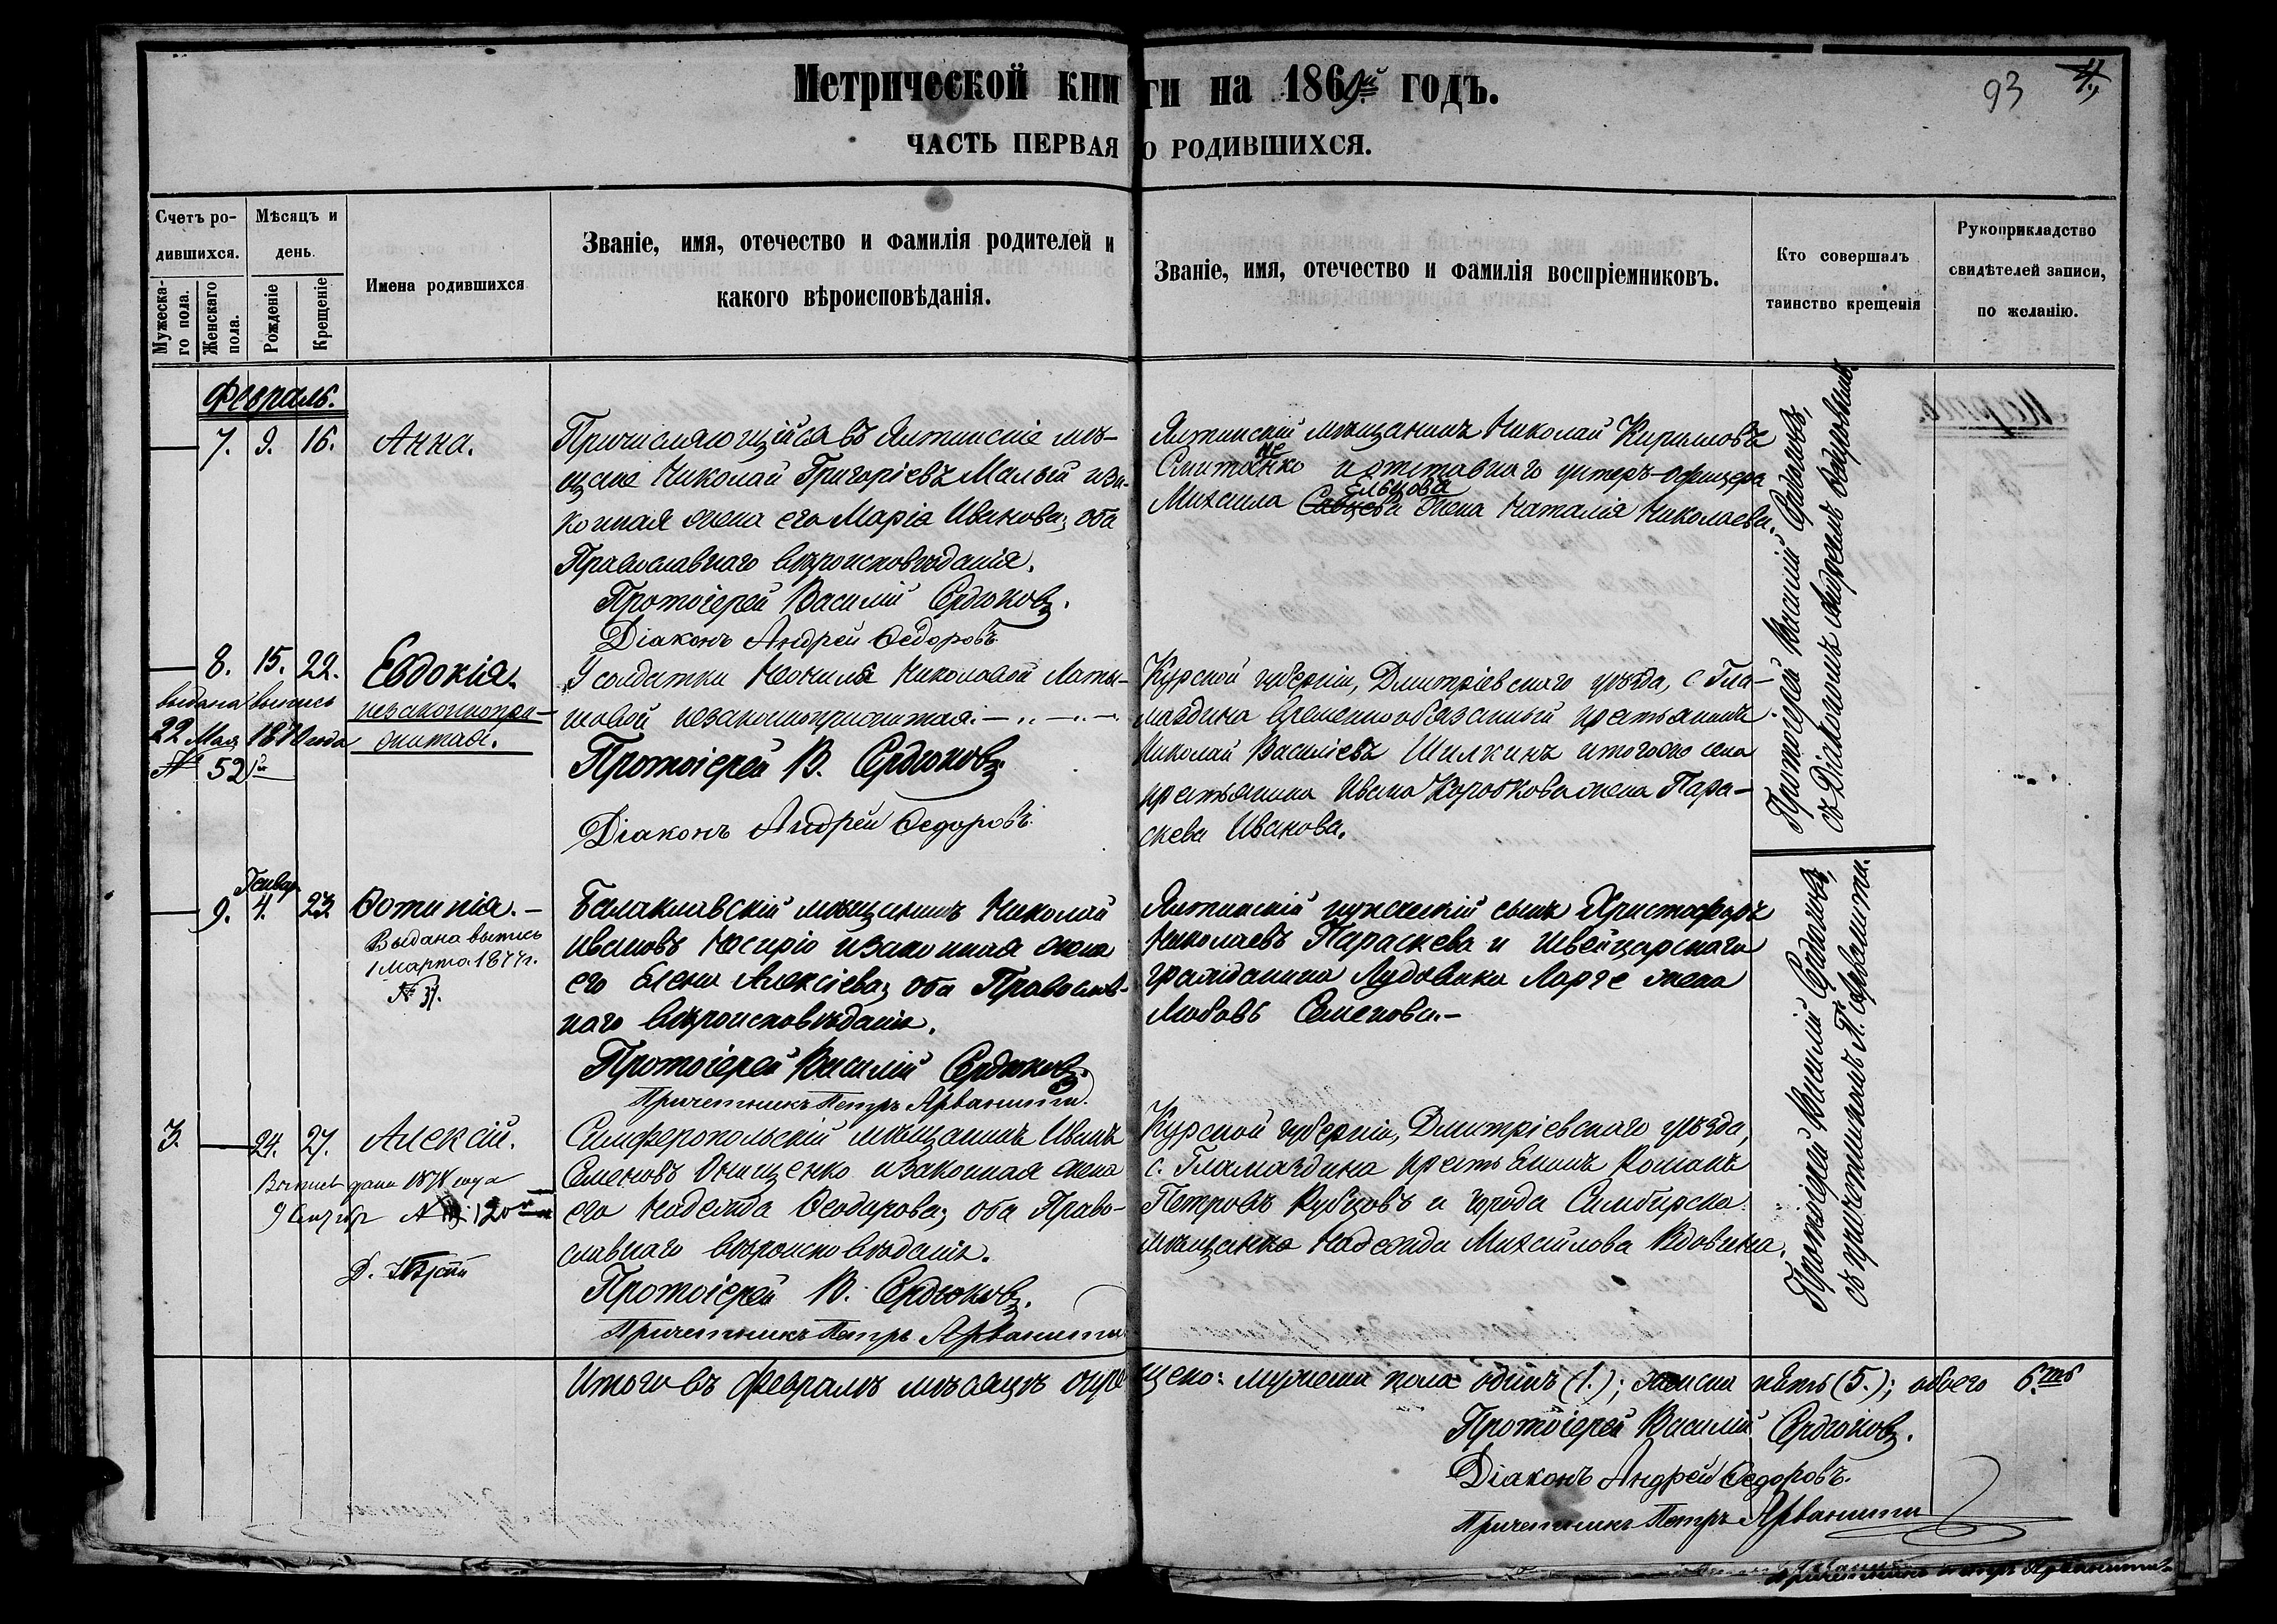 Метрической книги на 1869й годъ.
93
4,
ЧАСТЬ ПЕРВАЯ О РОДИВШИХСЯ.
Счетъ родившихся.
Мужескаго пола.
Женскаго пола.
Мѣсяцъ и день.
Рожденіе
Крещеніе
Имена родившихся
Званіе, имя, отечество и фамилія родителей и
какого вѣроисповѣданія.
Званіе, имя, отечество и фамилія воспріемниковъ.
Кто совершалъ
таинство крещенія
Рукоприкладство
свидѣтелей записи,
по желанію.
Февраль.
7. 9. 16. Анна.
Причисляющійся въ Ялтинскіе мѣ-
щане Николай Григоріевъ Малый иза-
конная жена его Марія Иванова; оба
Православнаго вѣроисповѣданія.
Протоіерей Василій Сердюковъ.
Діаконъ Андрей Ѳедоровъ
Ялтинскій мѣщанинъ Николай Кириловъ
и отставнаго унтеръ-офицера
Михаила Ельцова жена Наталія Николаева.
Протоіерей Василій Сердюковъ,
съ Діакономъ Андреемъ Ѳедоровымъ
8. 15. 22. Евдокія.
незаконнопри-
житая.
выдана выпись
22 Мая 1870 года
№ 52й
У солдатки Неонилы Николовой Латы-
шовой незаконноприжитая.
Протоіерей В. Сердюковъ.
Діаконъ Андрей Ѳедоровъ
Курской губерніи, Дмитріевскаго уѣзда, с. Гла-
маздина временнообязанный крестьянинъ
Николай Василіевъ Шилкинъ и тогоже села
крестьянина Ивана Коробкова жена Пара-
скева Иванова.
Генвар.
9. 4. 23. Фотинія.
Выдана выпись
1 Марта 1877г.
№ 37.
Балаклавскій мѣщанинъ Николай
Ивановъ изаконная жена
его Елена Алексіева; оба Православ-
наго вѣроисповѣданія.
Протоіерей Василій Сердюковъ.
Причетникъ Петръ Арванити.
Ялтинскій купеческій сынъ Христофоръ
Николаевъ Параскева и Швейцарскаго
гражданина Лудовика Ларге жена
Любовь Семенова.
Протоіерей Василій Сердюковъ,
съ причетникомъ П. Арванити.
3. 24. 27. Алексій.
Выпись дана 1878 года
9 120
Д.
Симферопольскій мѣщанинъ Иванъ
Семеновъ Онищенко изаконная жена
его Надежда Ѳеодорова; оба Право-
славнаго вѣроисповѣданія.
Протоіерей В. Сердюковъ.
Причетникъ Петръ Арванити
Курской губерніи, Дмитріевскаго уѣзда,
с. Гламаздина крестьянинъ Романъ
Петровъ Рубцовъ и города Симбирска
мѣщанка Надежда Михайлова Вдовина.
Итого въ Февралѣ мѣсяцѣ окрещено: мужеска пола одинъ (1.); женска пять (5.); обоего 6.ть
Протоіерей Василій Сердюковъ.
Діаконъ Андрей Ѳедоровъ.
Причетникъ Петръ Арванити
Причетникъ Петръ Арванити